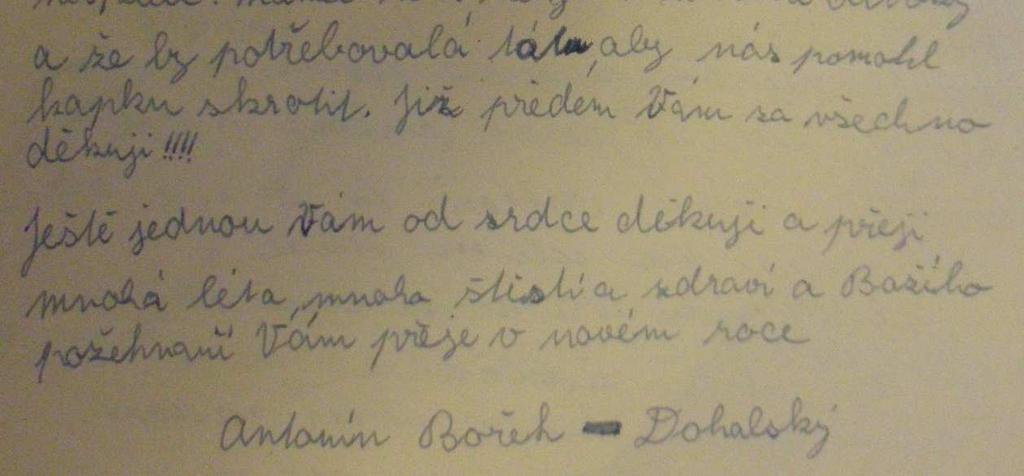 a že by potřebovala tátu, aby nás pomohl
kapku skrotit. Již předem Vám za všechno
děkuji!!!!
Ještě jednou Vám od srdce děkuji a přeji
mnohá léta, mnoho štěstí a zdraví a Božího
požehnaní Vám přeje v novém roce
Antonín Bořek - Dohalský